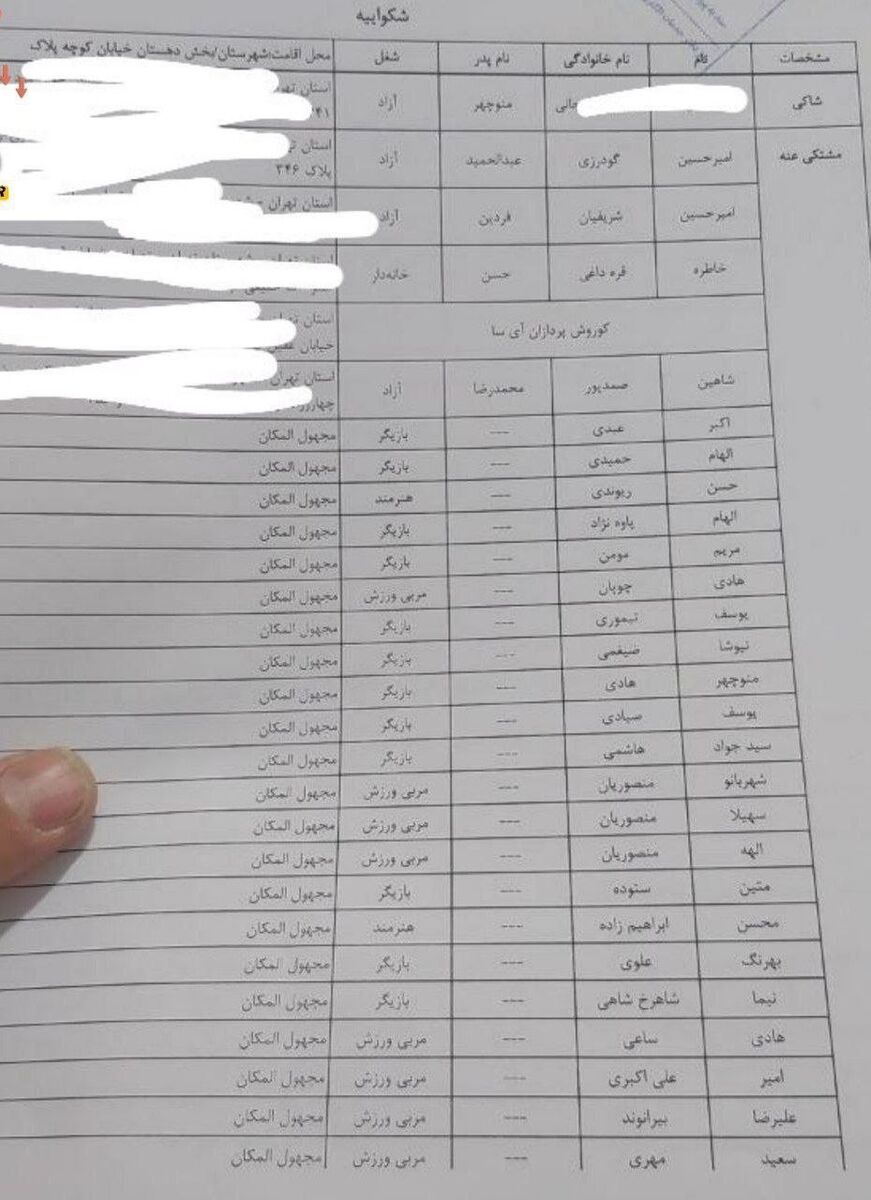 شکواییه
مشخصات نام نام خانوادگی نام پدر شغل محل اقامت:شهرستان/بخش دهستان خیابان کوچه پلاک
شاکی منوچهر آزاد استان
مشتکی عنه امیرحسین گودرزی عبدالحمید آزاد استان
پلاک ۳۴۶
امیرحسین شریفیان فردین آزاد استان تهران
خاطره قره داغی حسن خانه‌دار
کوروش پردازان آی سا استان
خیابان
شاهین صمدپور محمدرضا آزاد استان تهران
اکبر عبدی --- بازیگر مجهول المکان
الهام حمیدی --- بازیگر مجهول المکان
حسن ریوندی --- هنرمند مجهول المکان
الهام پاوه نژاد --- بازیگر مجهول المکان
مریم مومن --- بازیگر مجهول المکان
هادی چوپان --- مربی ورزش مجهول المکان
یوسف تیموری --- بازیگر مجهول المکان
نیوشا ضیغمی --- بازیگر مجهول المکان
منوچهر هادی --- بازیگر مجهول المکان
یوسف صیادی --- بازیگر مجهول المکان
سید جواد هاشمی --- بازیگر مجهول المکان
شهربانو منصوریان --- مربی ورزش مجهول المکان
سهیلا منصوریان --- مربی ورزش مجهول المکان
الهه منصوریان --- مربی ورزش مجهول المکان
متین ستوده --- بازیگر مجهول المکان
محسن ابراهیم زاده --- هنرمند مجهول المکان
بهرنگ علوی --- بازیگر مجهول المکان
نیما شاهرخ شاهی --- بازیگر مجهول المکان
هادی ساعی --- مربی ورزش مجهول المکان
امیر علی اکبری --- مربی ورزش مجهول المکان
علیرضا بیرانوند --- مربی ورزش مجهول المکان
سعید مهری --- مربی ورزش مجهول المکان